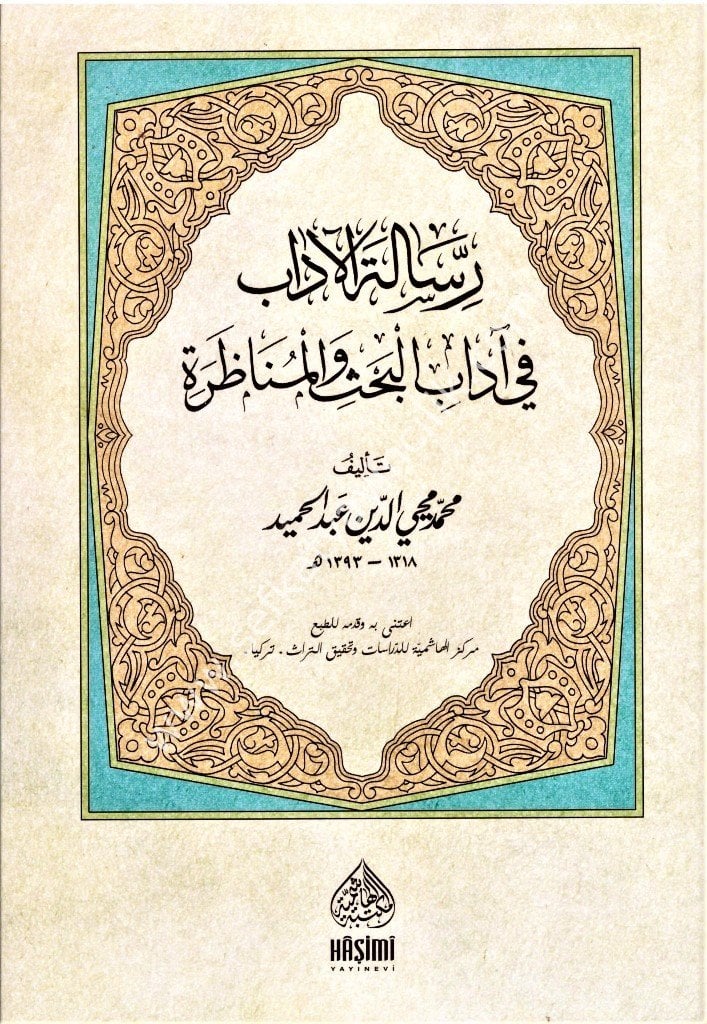 رِسَالَة الآدَاب
فِي آدَابِ الْبَحْثِ وَالْمُنَاظَرَة
تَأليفُ
محمّد محيي الدّين عَبد الحميد
١٣١٨ – ١٣٩٣ هـ
اعتنى به وقدمه للطبع
مركز الهاشمية للدراسات وتحقيق التراث - تركيا -
مكتبة الهاشمية
HÂŞİMÎ
YAYINEVİ